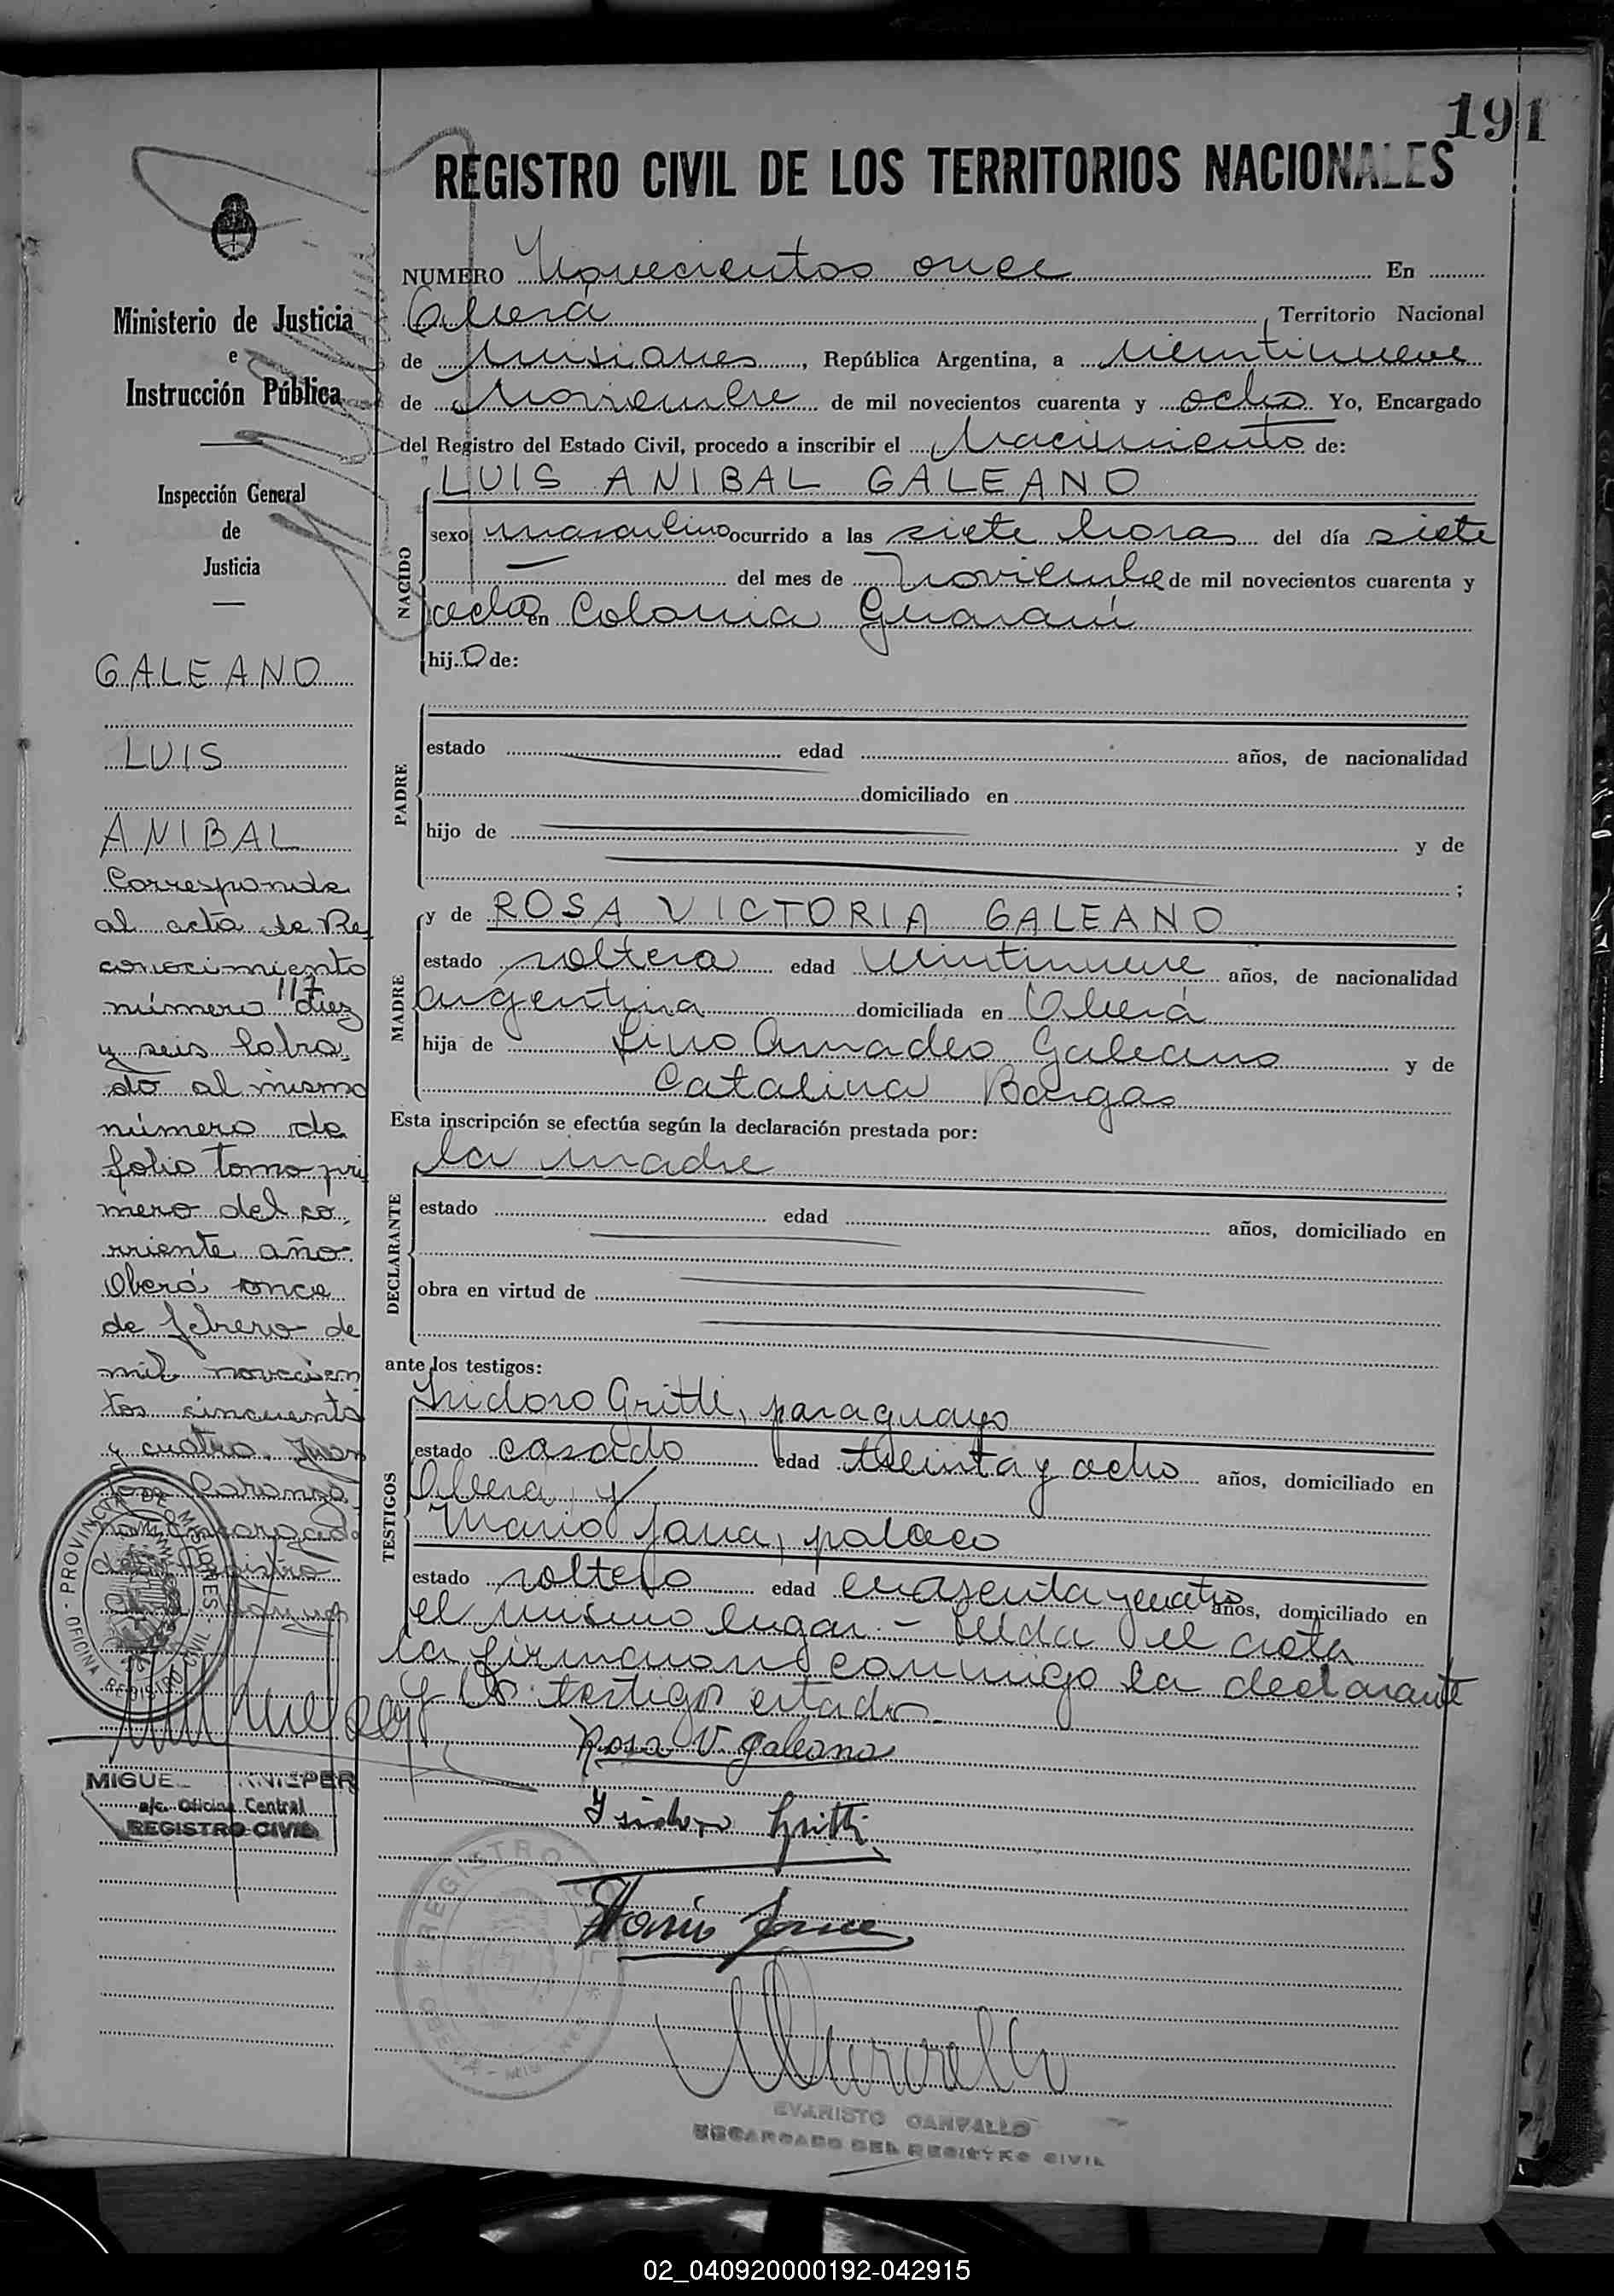 191
REGISTRO CIVIL DE LOS TERRITORIOS NACIONALES
NUMERO Novecientos once En
Oberá, Territorio Nacional
de Misiones, República Argentina, a veintinueve
de Noviembre de mil novecientos cuarenta y ocho Yo, Encargado
del Registro del Estado Civil, procedo a inscribir el Nacimiento de:
NACIDO
LUIS ANIBAL GALEANO
sexo masculino ocurrido a las siete horas del día siete
del mes de Noviembre de mil novecientos cuarenta y
ocho en Colonia Guaraní
hijo de:
PADRE
estado edad años, de nacionalidad
domiciliado en
hijo de y de
;
MADRE
y de ROSA VICTORIA GALEANO
estado soltera edad veintinueve años, de nacionalidad
argentina domiciliada en Oberá
hija de Lino Amadeo Galeano y de
Catalina Bargas
Esta inscripción se efectúa según la declaración prestada por:
DECLARANTE
la madre
estado edad años, domiciliado en
obra en virtud de
ante los testigos:
TESTIGOS
Isidoro Gritti, paraguayo
estado casado edad treinta y ocho años, domiciliado en
Oberá, y
Mario Jana, polaco
estado soltero edad cuarenta y cuatro años, domiciliado en
el mismo lugar.- Leída el acta
la firmaron conmigo la declarante
y los testigos citados.
Rosa V. Galeano
Isidoro Gritti
Mario
REGISTRO CIVIL
OBERA - MISIONES
EVARISTO CARVALLO
ENCARGADO DEL REGISTRO CIVIL
Ministerio de Justicia
e
Instrucción Pública
Inspección General
de
Justicia
GALEANO
LUIS
ANIBAL
Corresponde
al acta de Re
conocimiento
117
número diez
y seis labra
do al mismo
número de
folio tomo pri
mero del co
rriente año.
Oberá once
de febrero de
mil novecien
tos cincuenta
y cuatro. Juan
del Registro
PROVINCIA DE MISIONES
OFICINA REGISTRO CIVIL
MIGUEL
a/c. Oficina Central
REGISTRO CIVIL
02_040920000192-042915